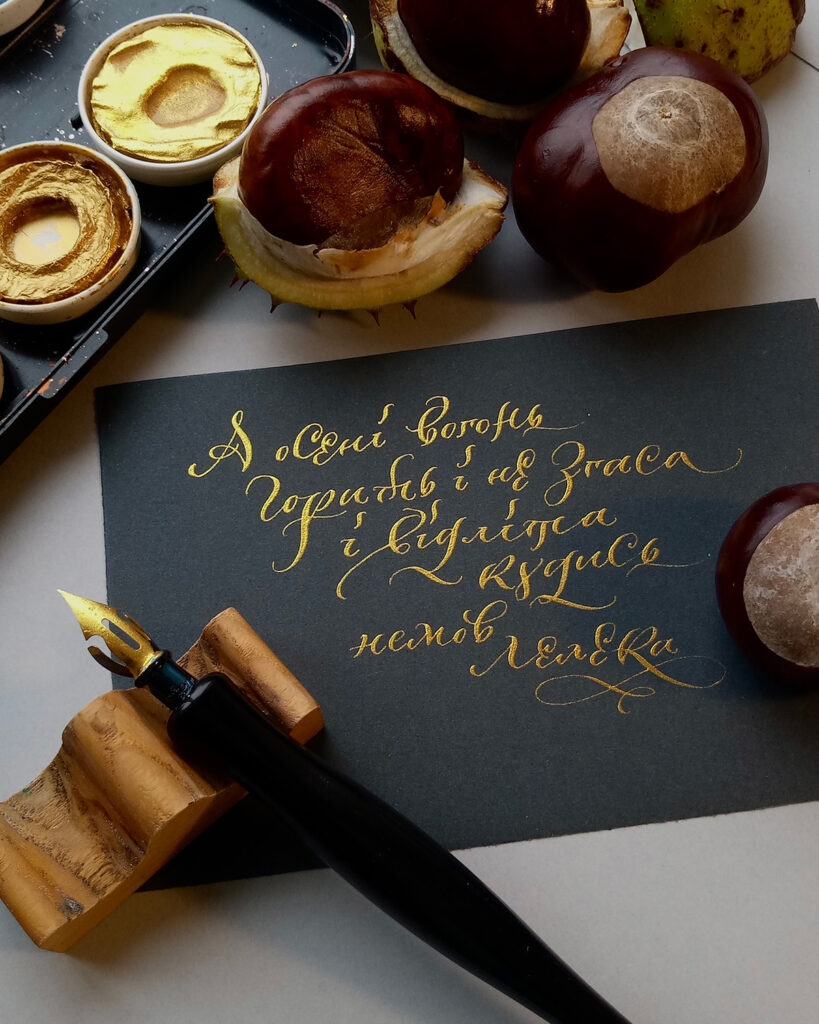 А осені вогонь
Горить і не згаса
і відліта
кудись
немов лелека